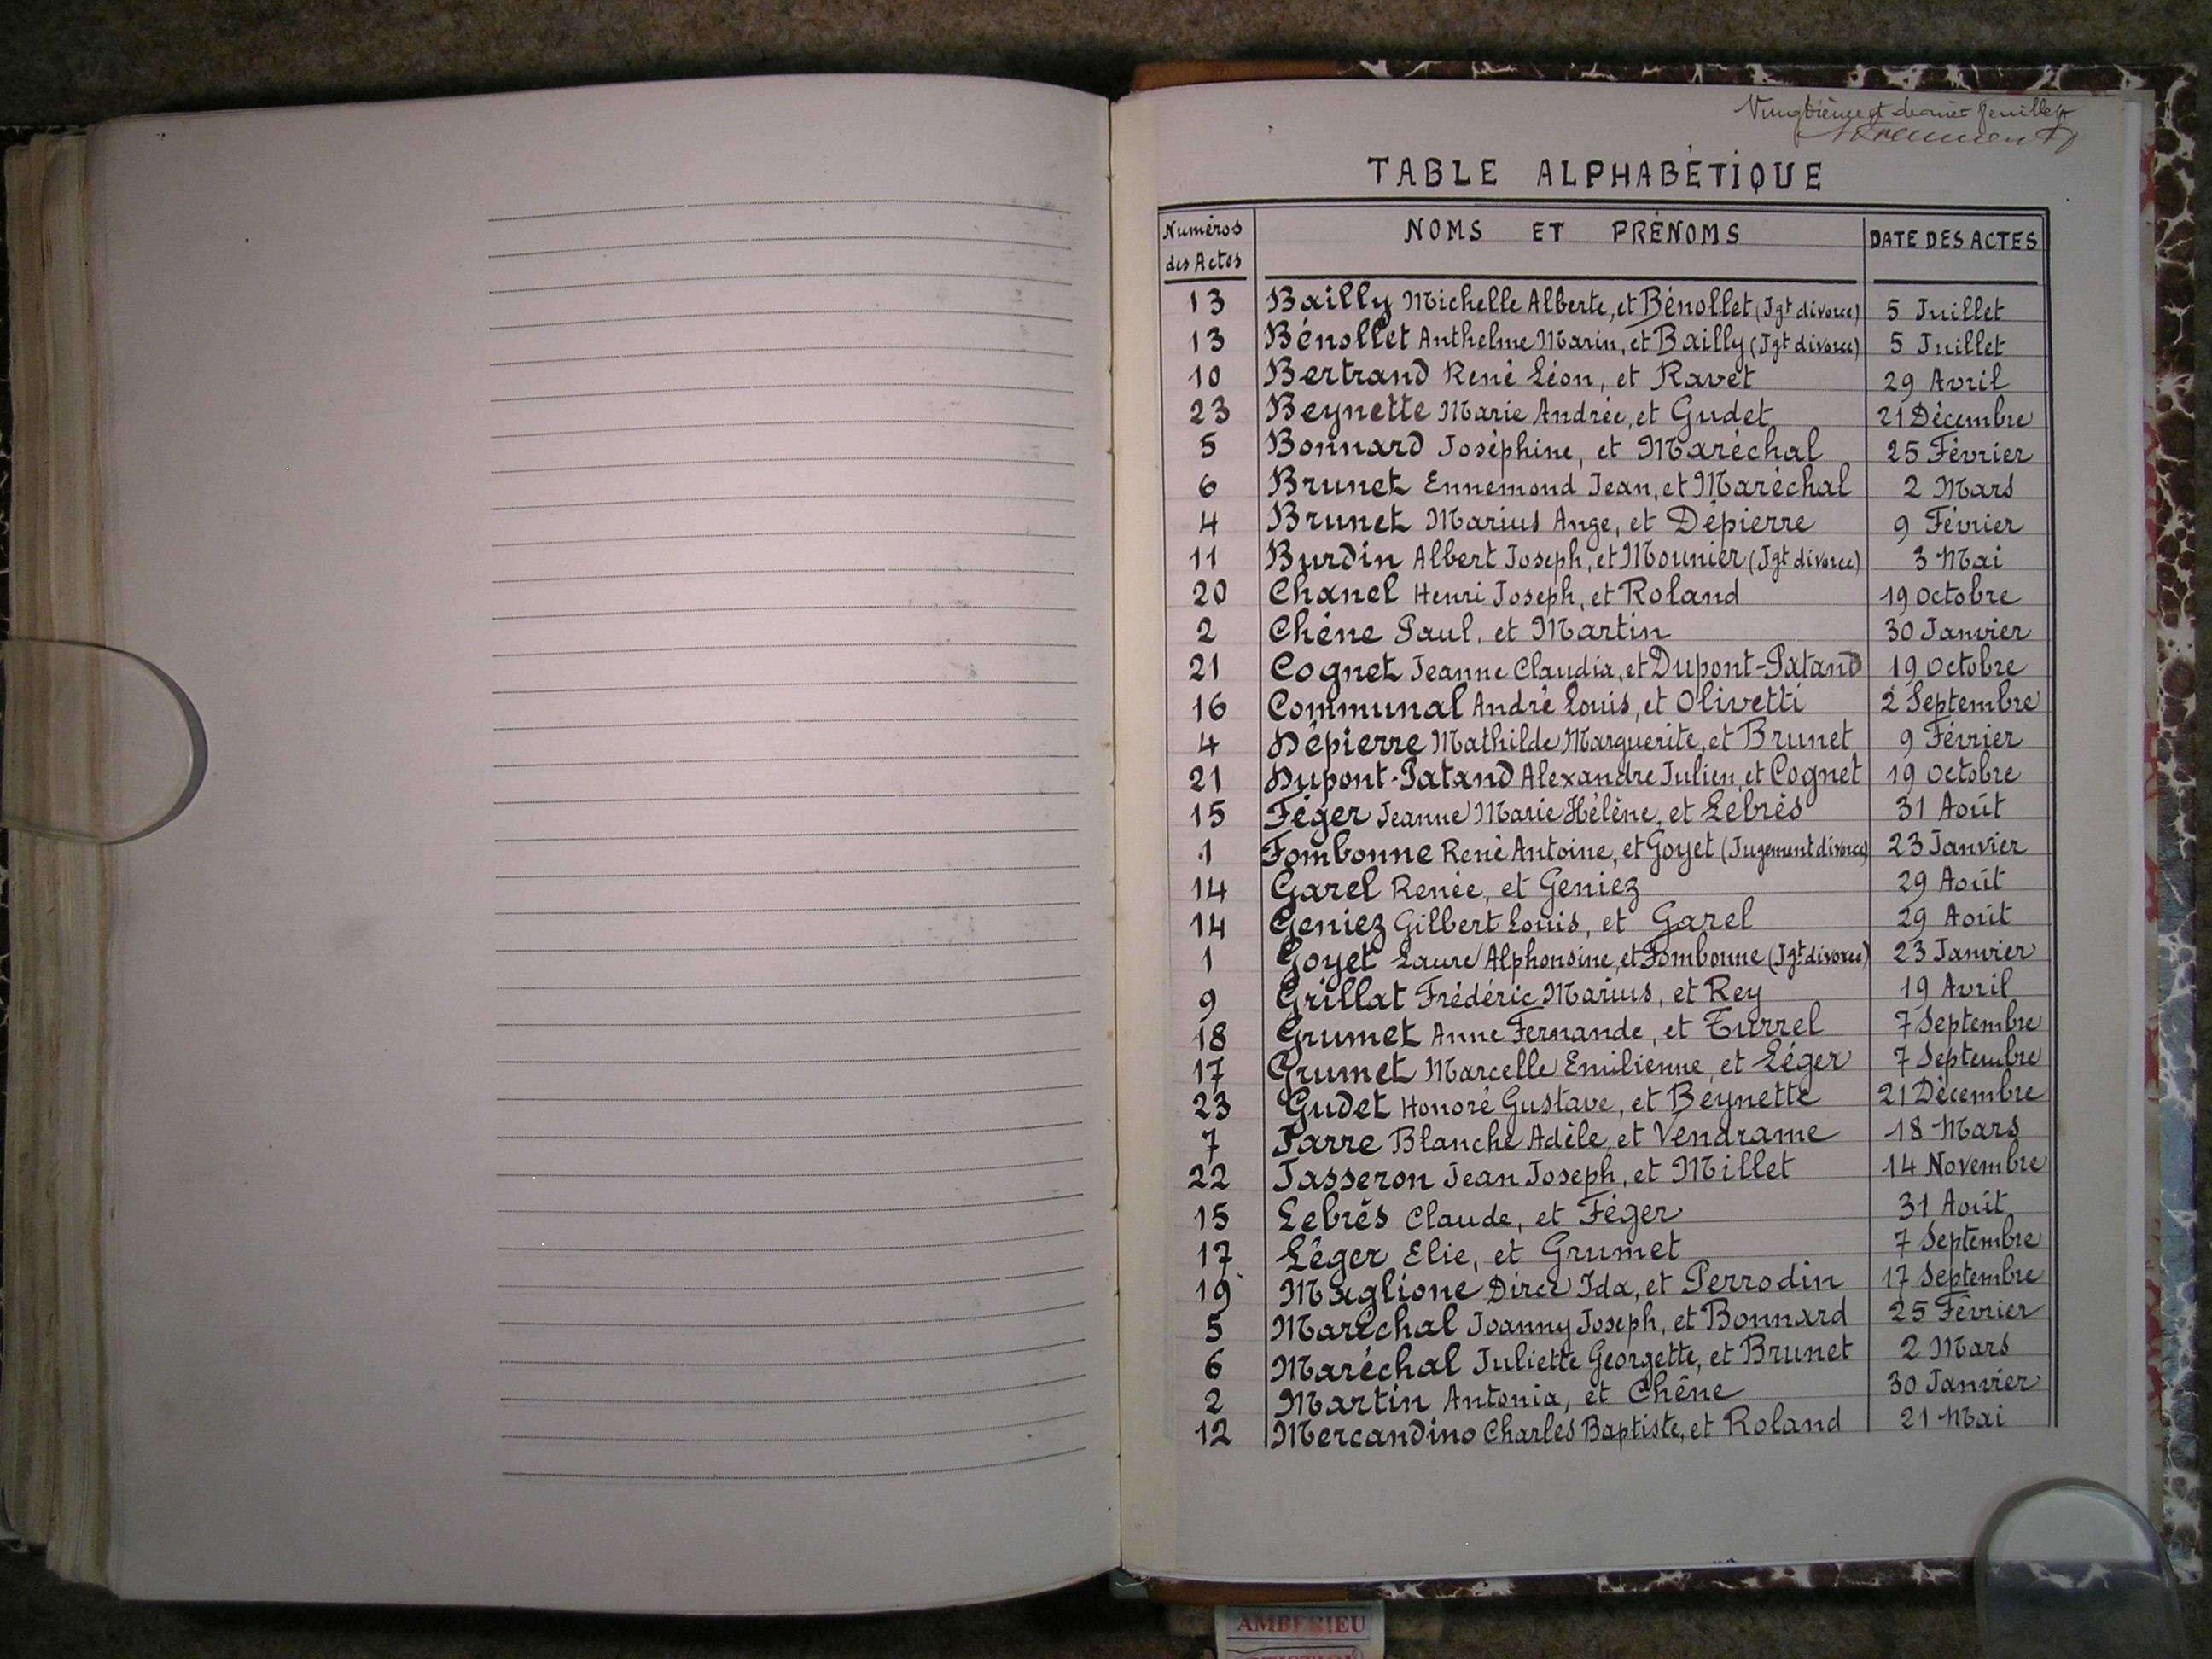 Vingtième et dernier feuillet
TABLE ALPHABÉTIQUE
Numéros des Actes NOMS ET PRÉNOMS DATE DES ACTES
13 Bailly Michelle Alberte, et Bénollet (Jgt divorce) 5 Juillet
13 Bénollet Anthelme Marin, et Bailly (Jgt divorce) 5 Juillet
10 Bertrand René Léon, et Ravet 29 Avril
23 Beynette Marie Andrée, et Gudet 21 Décembre
5 Bonnard Joséphine, et Maréchal 25 Février
6 Brunet Ennemond Jean, et Maréchal 2 Mars
4 Brunet Marius Ange, et Dépierre 9 Février
11 Burdin Albert Joseph, et Mounier (Jgt divorce) 3 Mai
20 Chanel Henri Joseph, et Roland 19 Octobre
2 Chêne Paul, et Martin 30 Janvier
21 Cognet Jeanne Claudia, et Dupont-Patand 19 Octobre
16 Communal André Louis, et Olivetti 2 Septembre
4 Dépierre Mathilde Marguerite, et Brunet 9 Février
21 Dupont-Patand Alexandre Julien, et Cognet 19 Octobre
15 Féger Jeanne Marie Hélène, et Lebrés 31 Août
1 Fombonne René Antoine, et Goyet (Jugement divorce) 23 Janvier
14 Garel Renée, et Geniez 29 Août
14 Geniez Gilbert Louis, et Garel 29 Août
1 Goyet Laure Alphonsine, et Fombonne (Jgt divorce) 23 Janvier
9 Grillat Frédéric Marius, et Rey 19 Avril
18 Grumet Anne Fernande, et Turrel 7 Septembre
17 Grumet Marcelle Emilienne, et Léger 7 Septembre
23 Gudet Honoré Gustave, et Beynette 21 Décembre
7 Jarre Blanche Adèle, et Vendrame 18 Mars
22 Jasseron Jean Joseph, et Millet 14 Novembre
15 Lebrés Claude, et Féger 31 Août
17 Léger Elie, et Grumet 7 Septembre
19 Maglione Dirce Ida, et Perrodin 17 Septembre
5 Maréchal Joanny Joseph, et Bonnard 25 Février
6 Maréchal Juliette Georgette, et Brunet 2 Mars
2 Martin Antonia, et Chêne 30 Janvier
12 Mercandino Charles Baptiste, et Roland 21 Mai
AMBERIEU